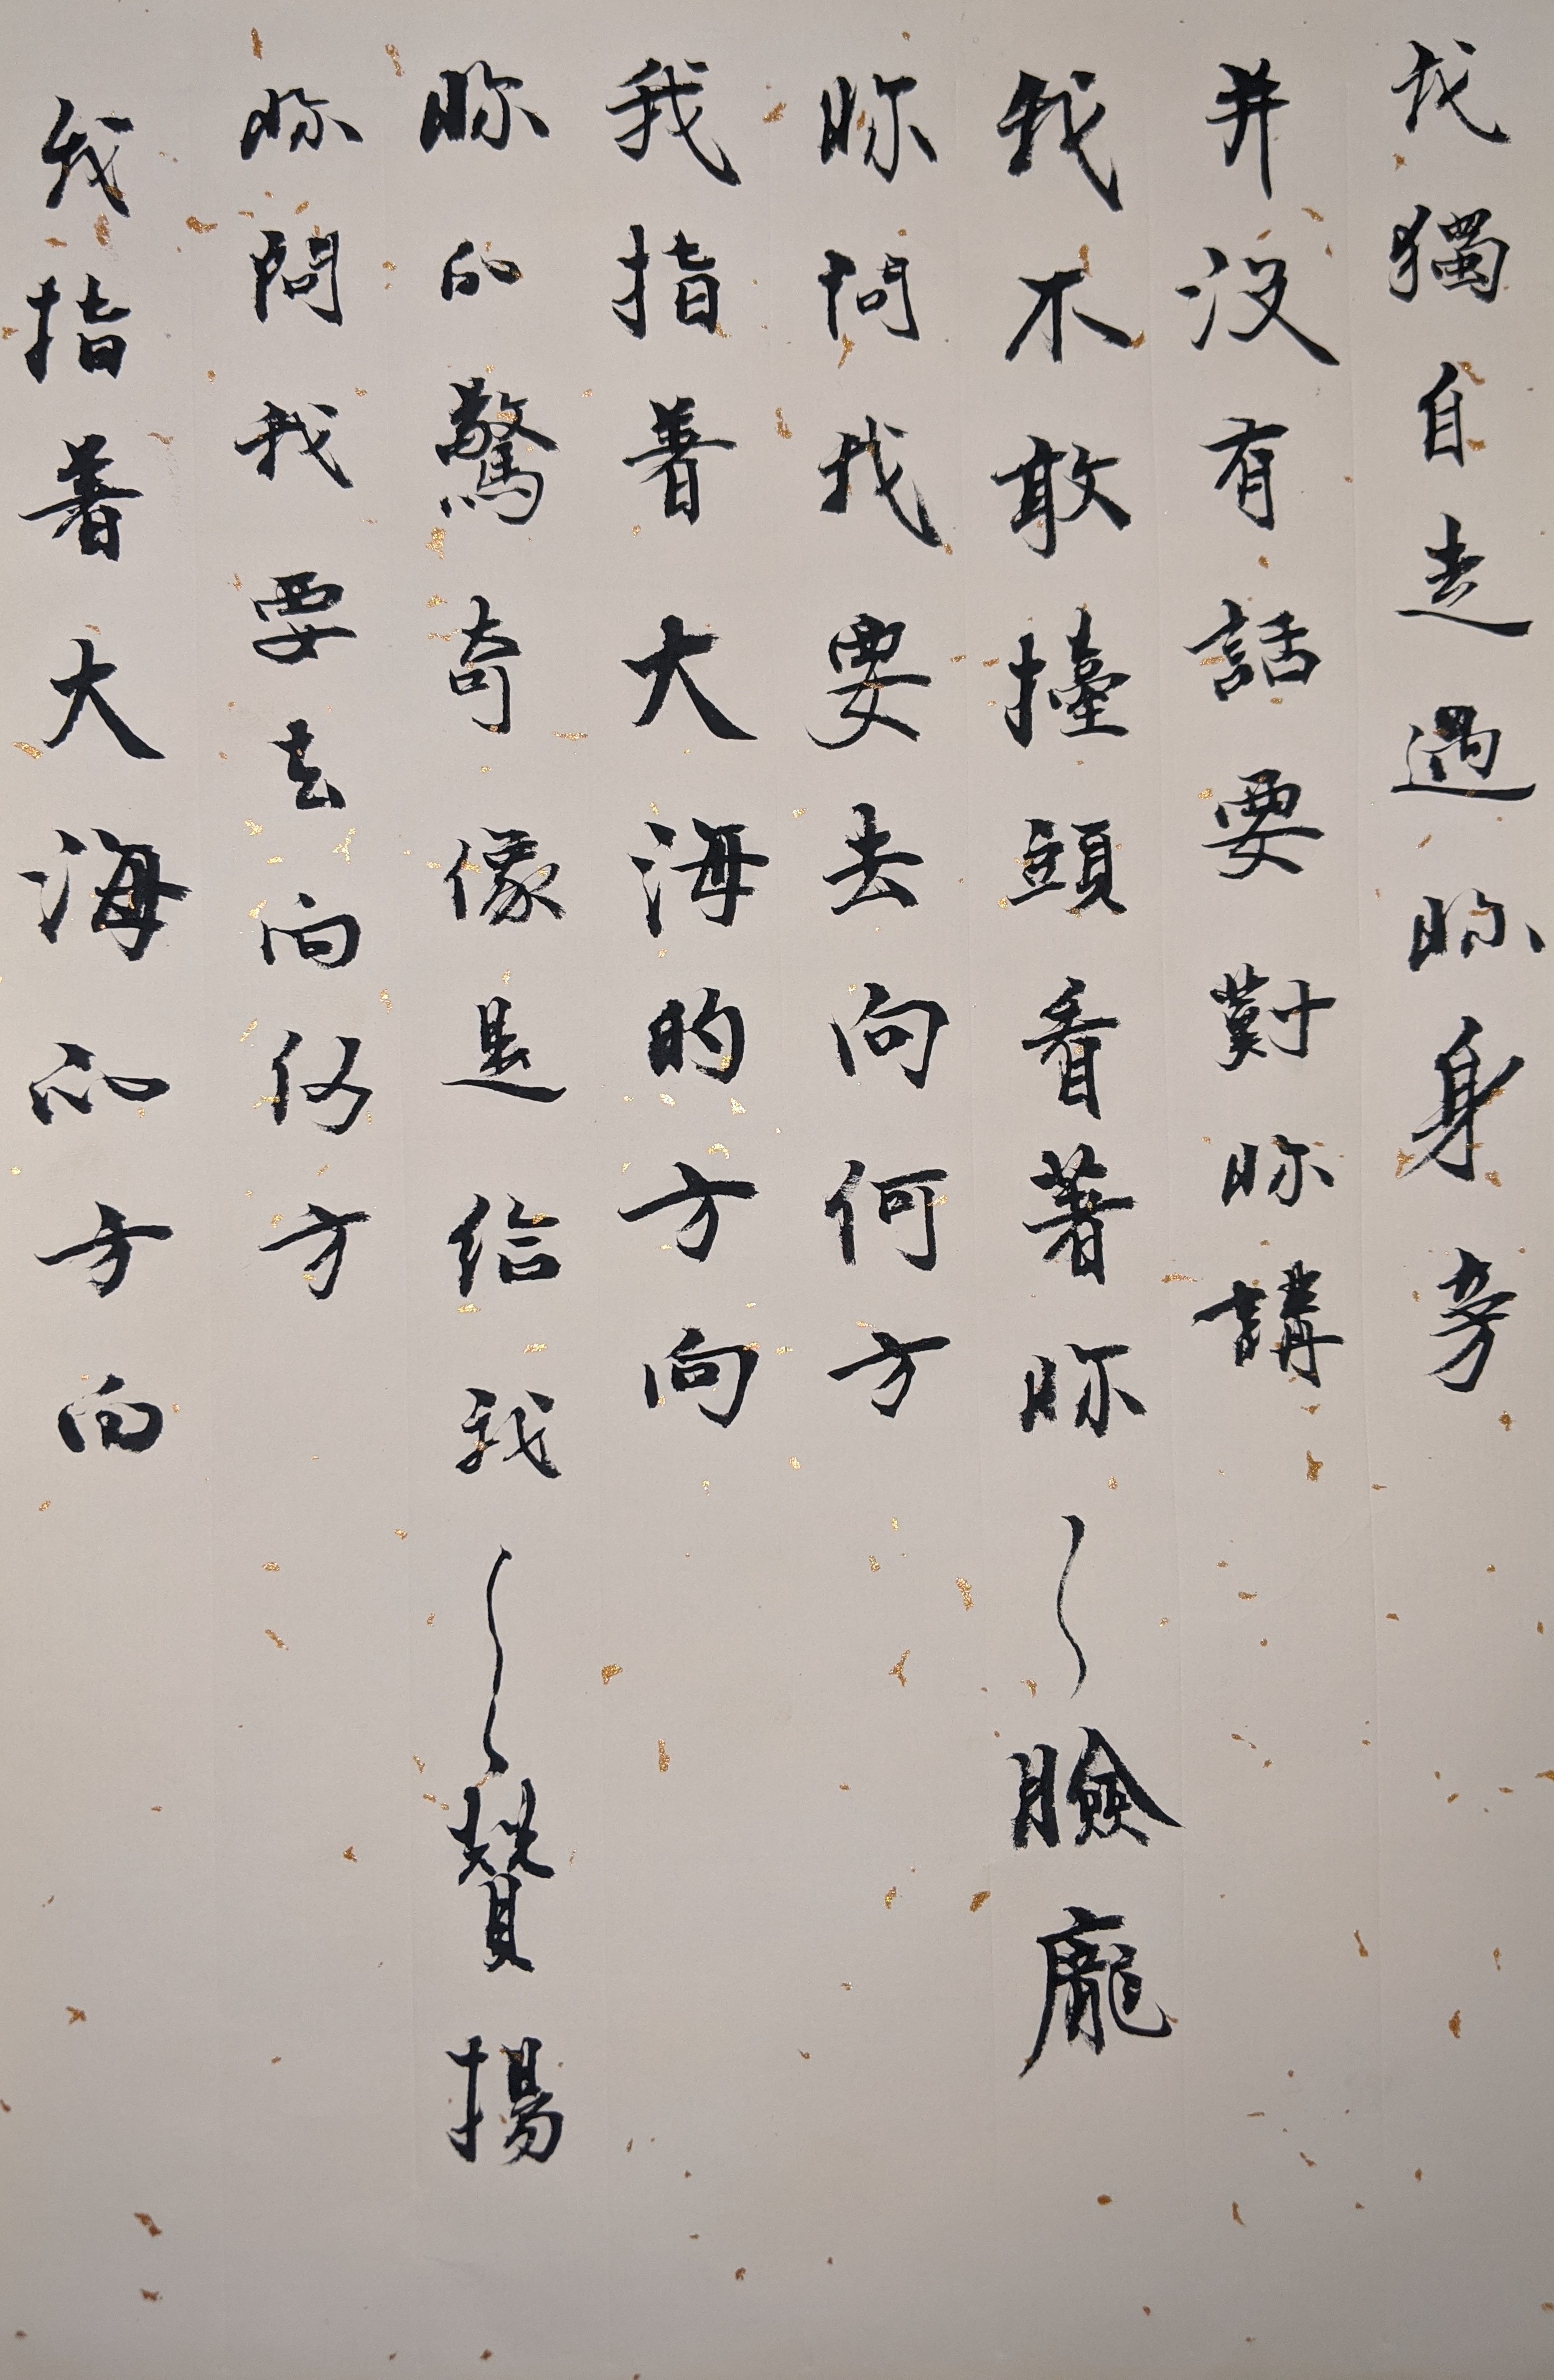 我獨自走過眎身旁
并没有話要對眎講
我不敢擡頭看著眎～臉龐
眎問我要去向何方
我指着大海的方向
眎的驚奇像是給我～～贊揚
眎問我要去向何方
我指着大海的方向